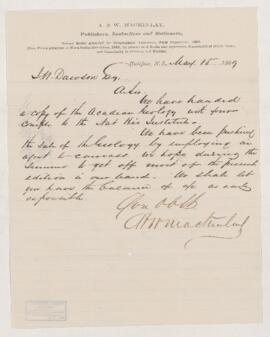 A. & W. MACKINLAY,
Publishers, Booksellers and Stationers,
Halifax, N.S., May 15 1869
J. W. Dawson Esq.
We have handed
a copy of the Acadian Geology with your
to the Nat His Institute.
We have been pushing
the sale of the Geology by employing an
agent to canvass. We hope during the
summer to get off most of the present
edition in our hand. We shall let
you have the balance of a/c as early
as possible
A & W Mackinlay